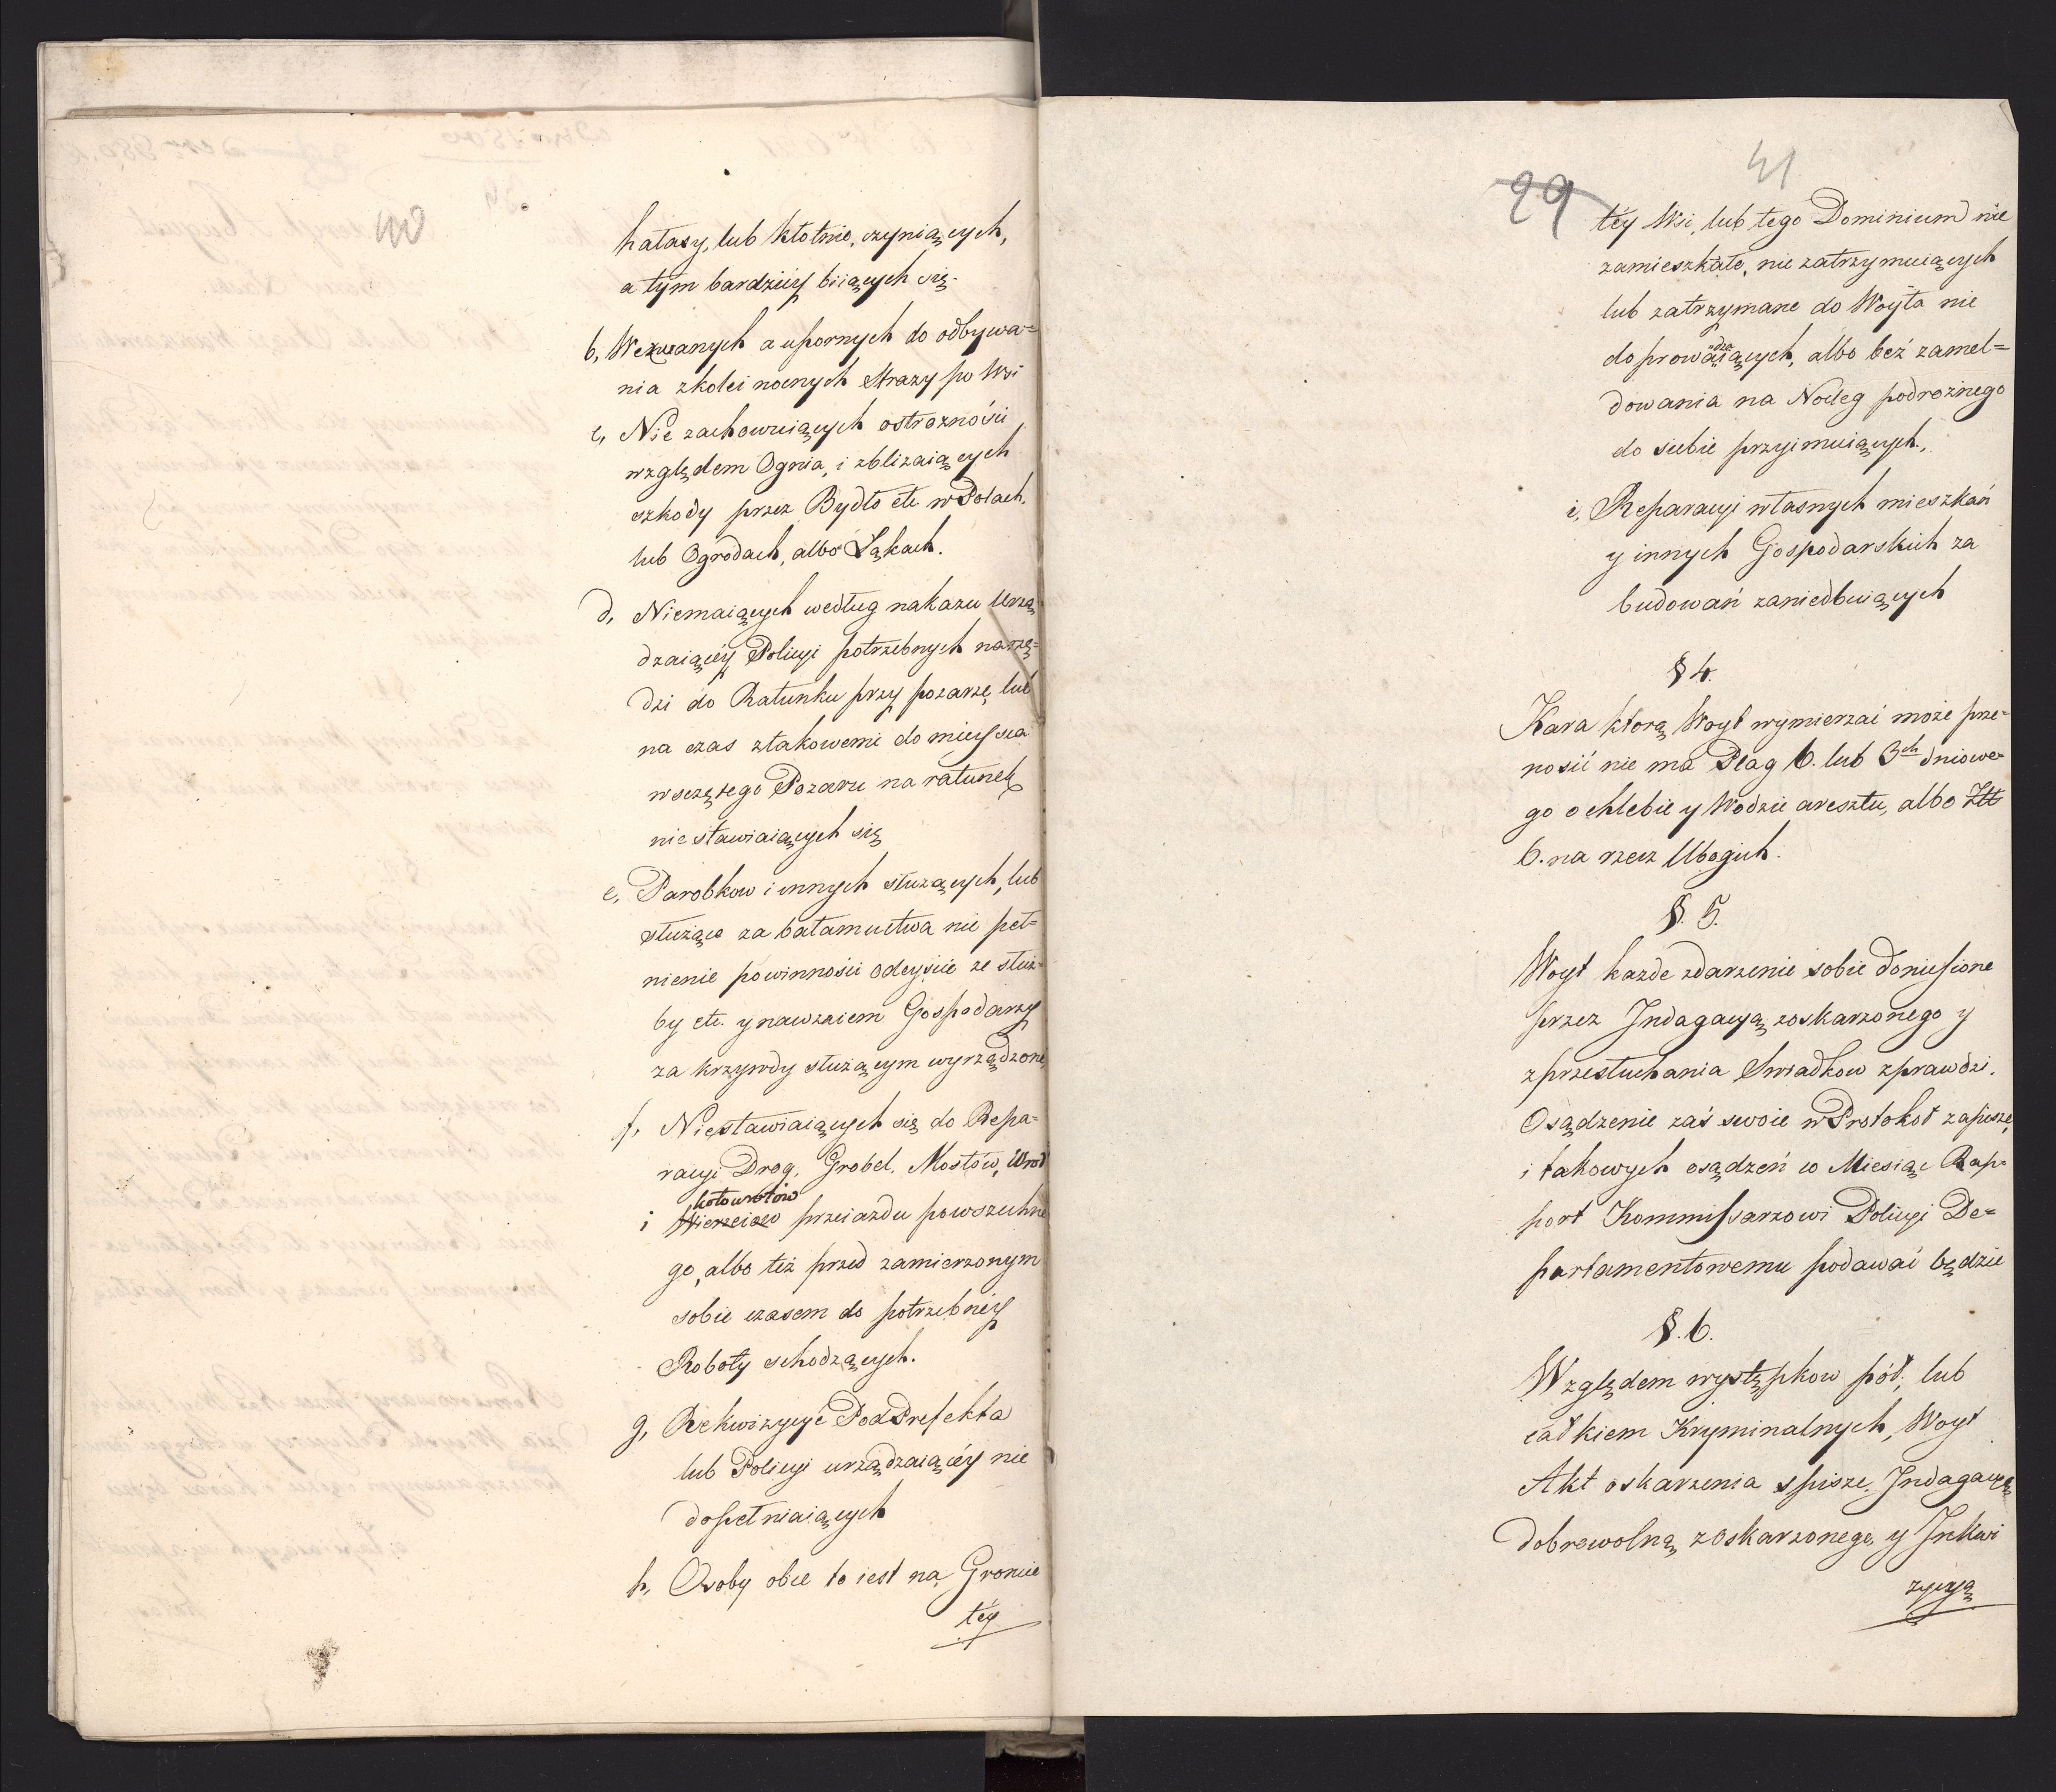 hałasy, lub kłotnie, czyniących,
a tym bardziéy biiących się.
b, Wezwanych a upornych do odbywa=
nia zkolei nocnych Straży po Wsi
c, Nie zachowuiących ostrozności
względem Ognia, i zbliżaiących
szkody przez Bydło etc. w Polach,
lub Ogrodach, albo Łąkach.
d, Niemaiących według nakazu Urzą
dzaiącéy Policyi potrzebnych narzę=
dzi do Ratunku przy pozarze, lub
na czas ztakowemi do mieysca
wszczętego Pozaru na ratunek
nie stawiaiących się
e, Parobkow i innych służących, lub
służące za bałamuctwa nie peł=
nienie powinności odeyście ze służ=
by etc. y nawzaiem Gospodarzy
za krzywdy służącym wyrządzone
f, Niestawiaiących się do Repa=
racyi Drog, Grobel, Mostów, Wrot
kołowrotów
i przeiazdu powszechne
go, albo też przed zamierzonym
sobie czasem do potrzebnéy
Roboty schodzących.
g, Rekwizycyie PodPrefekta
lub Policyi urządzaiącéy nie
dopełniaiących
h, Osoby obce to iest na Groncie
téy
41
29
téy Wsi, lub tego Dominium nie
zamieszkałe, nie zatrzymuiących
lub zatrzymane do Woyta nie
doprowadzaiących, albo beź zamel=
dowania na Nocleg podroźnego
do siebie przyimuiących,
i, Reparacyi własnych mieszkań
y innych Gospodarskich za
budowań zaniedbuiących
§ 4.
Kara ktorą Woyt wymierzać może prze=
nosić nie ma Plag 6. lub 3ch dniowe=
go o chlebie y Wodzie aresztu, albo Złł
6. na rzecz Ubogich.
§. 5.
Woyt kazde zdarzenie sobie doniesione
przez Indagacyą zoskarzonego y
zprzesłuchania Swiadkow zprawdzi.
Osądzenie zaś swoie w Protokoł zapisze,
i takowych osądzeń co Miesiąc Rap=
port Kommissarzowi Policyi De=
partamentowemu podawać będzie
§. 6.
Względem występkow pół, lub
całkiem Kryminalnych, Woyt
Akt oskarzenia spisze, Indagacyą
dobrowolną zoskarzonego, y Inkwi
zycyą